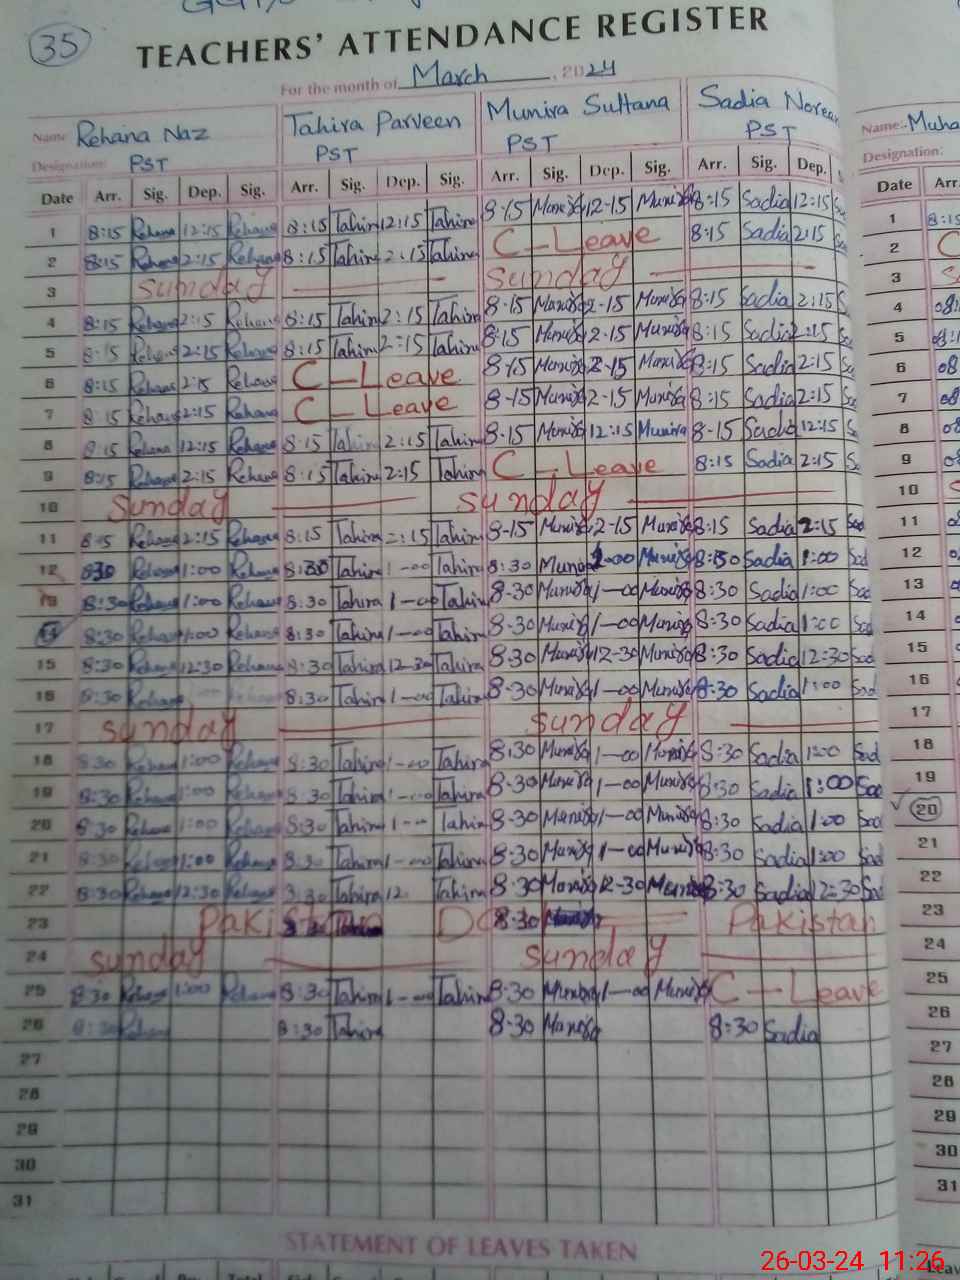 35
TEACHERS' ATTENDANCE REGISTER
For the month of March, 2024
Name Rehana Naz Tahira Parveen Munira Sultana Sadia Noreen Name:-Muha
Designation: PST PST PST PST Designation:
Date Arr. Sig. Dep. Sig. Arr. Sig. Dep. Sig. Arr. Sig. Dep. Sig. Arr. Sig. Dep. Date Arr.
1 8:15 Rehana 12:15 Rehana 8:15 Tahira 12:15 Tahira 8-15 Munira 12-15 Munira 8:15 Sadia 12:15 1 8:15
2 8:15 Rehana 2:15 Rehana 8:15 Tahira 2:15 Tahira C-Leave 8:15 Sadia 2:15 2 C
3 Sunday Sunday 3
4 8:15 Rehana 2:15 Rehana 8:15 Tahira 2:15 Tahira 8-15 Munira 2-15 Munira 8:15 Sadia 2:15 4
5 8:15 Rehana 2:15 Rehana 8:15 Tahira 2:15 Tahira 8:15 Munira 2-15 Munira 8:15 Sadia 2:15 5
6 8:15 Rehana 2:15 Rehana C-Leave 8-15 Munira 2-15 Munira 8:15 Sadia 2:15 6 08
7 8:15 Rehana 2:15 Rehana C-Leave 8-15 Munira 2-15 Munira 8:15 Sadia 2:15 7 08
8 8:15 Rehana 12:15 Rehana 8:15 Tahira 2:15 Tahira 8-15 Munira 12:15 Munira 8-15 Sadia 12:15 8
9 8:15 Rehana 2:15 Rehana 8:15 Tahira 2:15 Tahira C-Leave 8:15 Sadia 2:15 9
10 Sunday Sunday 10
11 8:15 Rehana 2:15 Rehana 8:15 Tahira 2:15 Tahira 8-15 Munira 2-15 Munira 8:15 Sadia 2:15 Sad 11
12 8:30 Rehana 1:00 Rehana 8:30 Tahira 1-00 Tahira 8:30 Munira 1-00 Munira 8:30 Sadia 1:00 Sad 12
13 8:30 Rehana 1:00 Rehana 8:30 Tahira 1-00 Tahira 8-30 Munira 1-00 Munira 8:30 Sadia 1:00 Sad 13
8:30 Rehana 1:00 Rehana 8:30 Tahira 1-00 Tahira 8-30 Munira 1-00 Munira 8:30 Sadia 1:00 Sad 14
15 8:30 Rehana 12:30 Rehana 8:30 Tahira 12-30 Tahira 8-30 Munira 12-30 Munira 8:30 Sadia 12:30 Sad 15
16 8:30 Rehana 8:30 Tahira 1-00 Tahira 8-30 Munira 1-00 Munira 8:30 Sadia 1:00 Sad 16
17 Sunday Sunday 17
18 8:30 Rehana 1:00 Rehana 8:30 Tahira 1-00 Tahira 8:30 Munira 1-00 Munira 8:30 Sadia 1:00 Sad 18
19 8:30 Rehana 1:00 Rehana 8:30 Tahira 1-00 Tahira 8-30 Munira 1-00 Munira 8:30 Sadia 1:00 Sad 19
20 8:30 Rehana 1:00 Rehana 8:30 Tahira 1-00 Tahira 8-30 Munira 1-00 Munira 8:30 Sadia 1:00 Sad 20
21 8:30 Rehana 1:00 Rehana 8:30 Tahira 1-00 Tahira 8-30 Munira 1-00 Munira 8:30 Sadia 1:00 Sad 21
22 8:30 Rehana 12:30 Rehana 8:30 Tahira 12 Tahira 8-30 Munira 12-30 Munira 8:30 Sadia 12:30 Sad 22
23 Pakistan 8-30 Pakistan 23
24 Sunday Sunday 24
25 8:30 Rehana 1:00 Rehana 8:30 Tahira 1-00 Tahira 8-30 Munira 1-00 Munira C-Leave 25
26 8:30 Rehana 8:30 Tahira 8-30 Munira 8:30 Sadia 26
27 27
28 28
29 29
30 30
31 31
STATEMENT OF LEAVES TAKEN
26-03-24 11:26